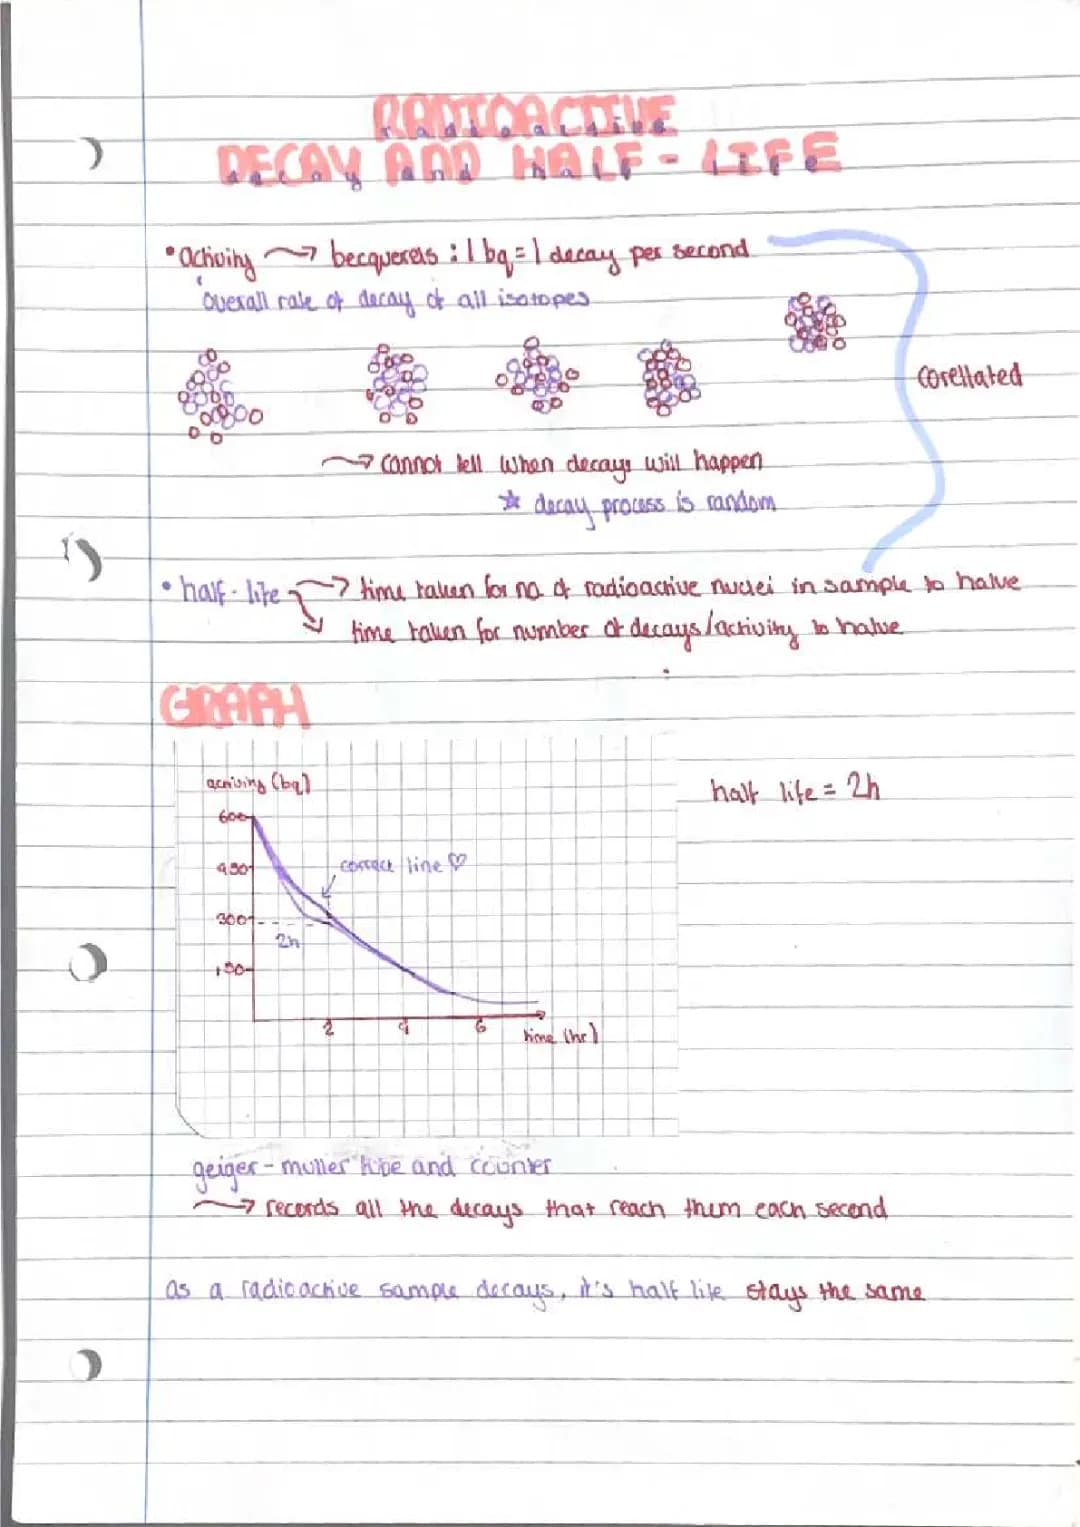 RADIOACTIVE
radioactive
DECAY AND HALF-LIFE
decay and half-life
• Activity → becquerels : 1 bq = 1 decay per second
overall rate of decay of all isotopes
Corellated
→ cannot tell when decays will happen
☆ decay process is random
• half-life → time taken for no. of radioactive nuclei in sample to halve
↘ time taken for number of decays/activity to halve
GRAPH
activity (bq)
half life = 2h
600
450
correct line ♡
300
2h
150
2 4 6
time (hr)
geiger-muller tube and counter
→ records all the decays that reach them each second
as a radioactive sample decays, it's half life stays the same